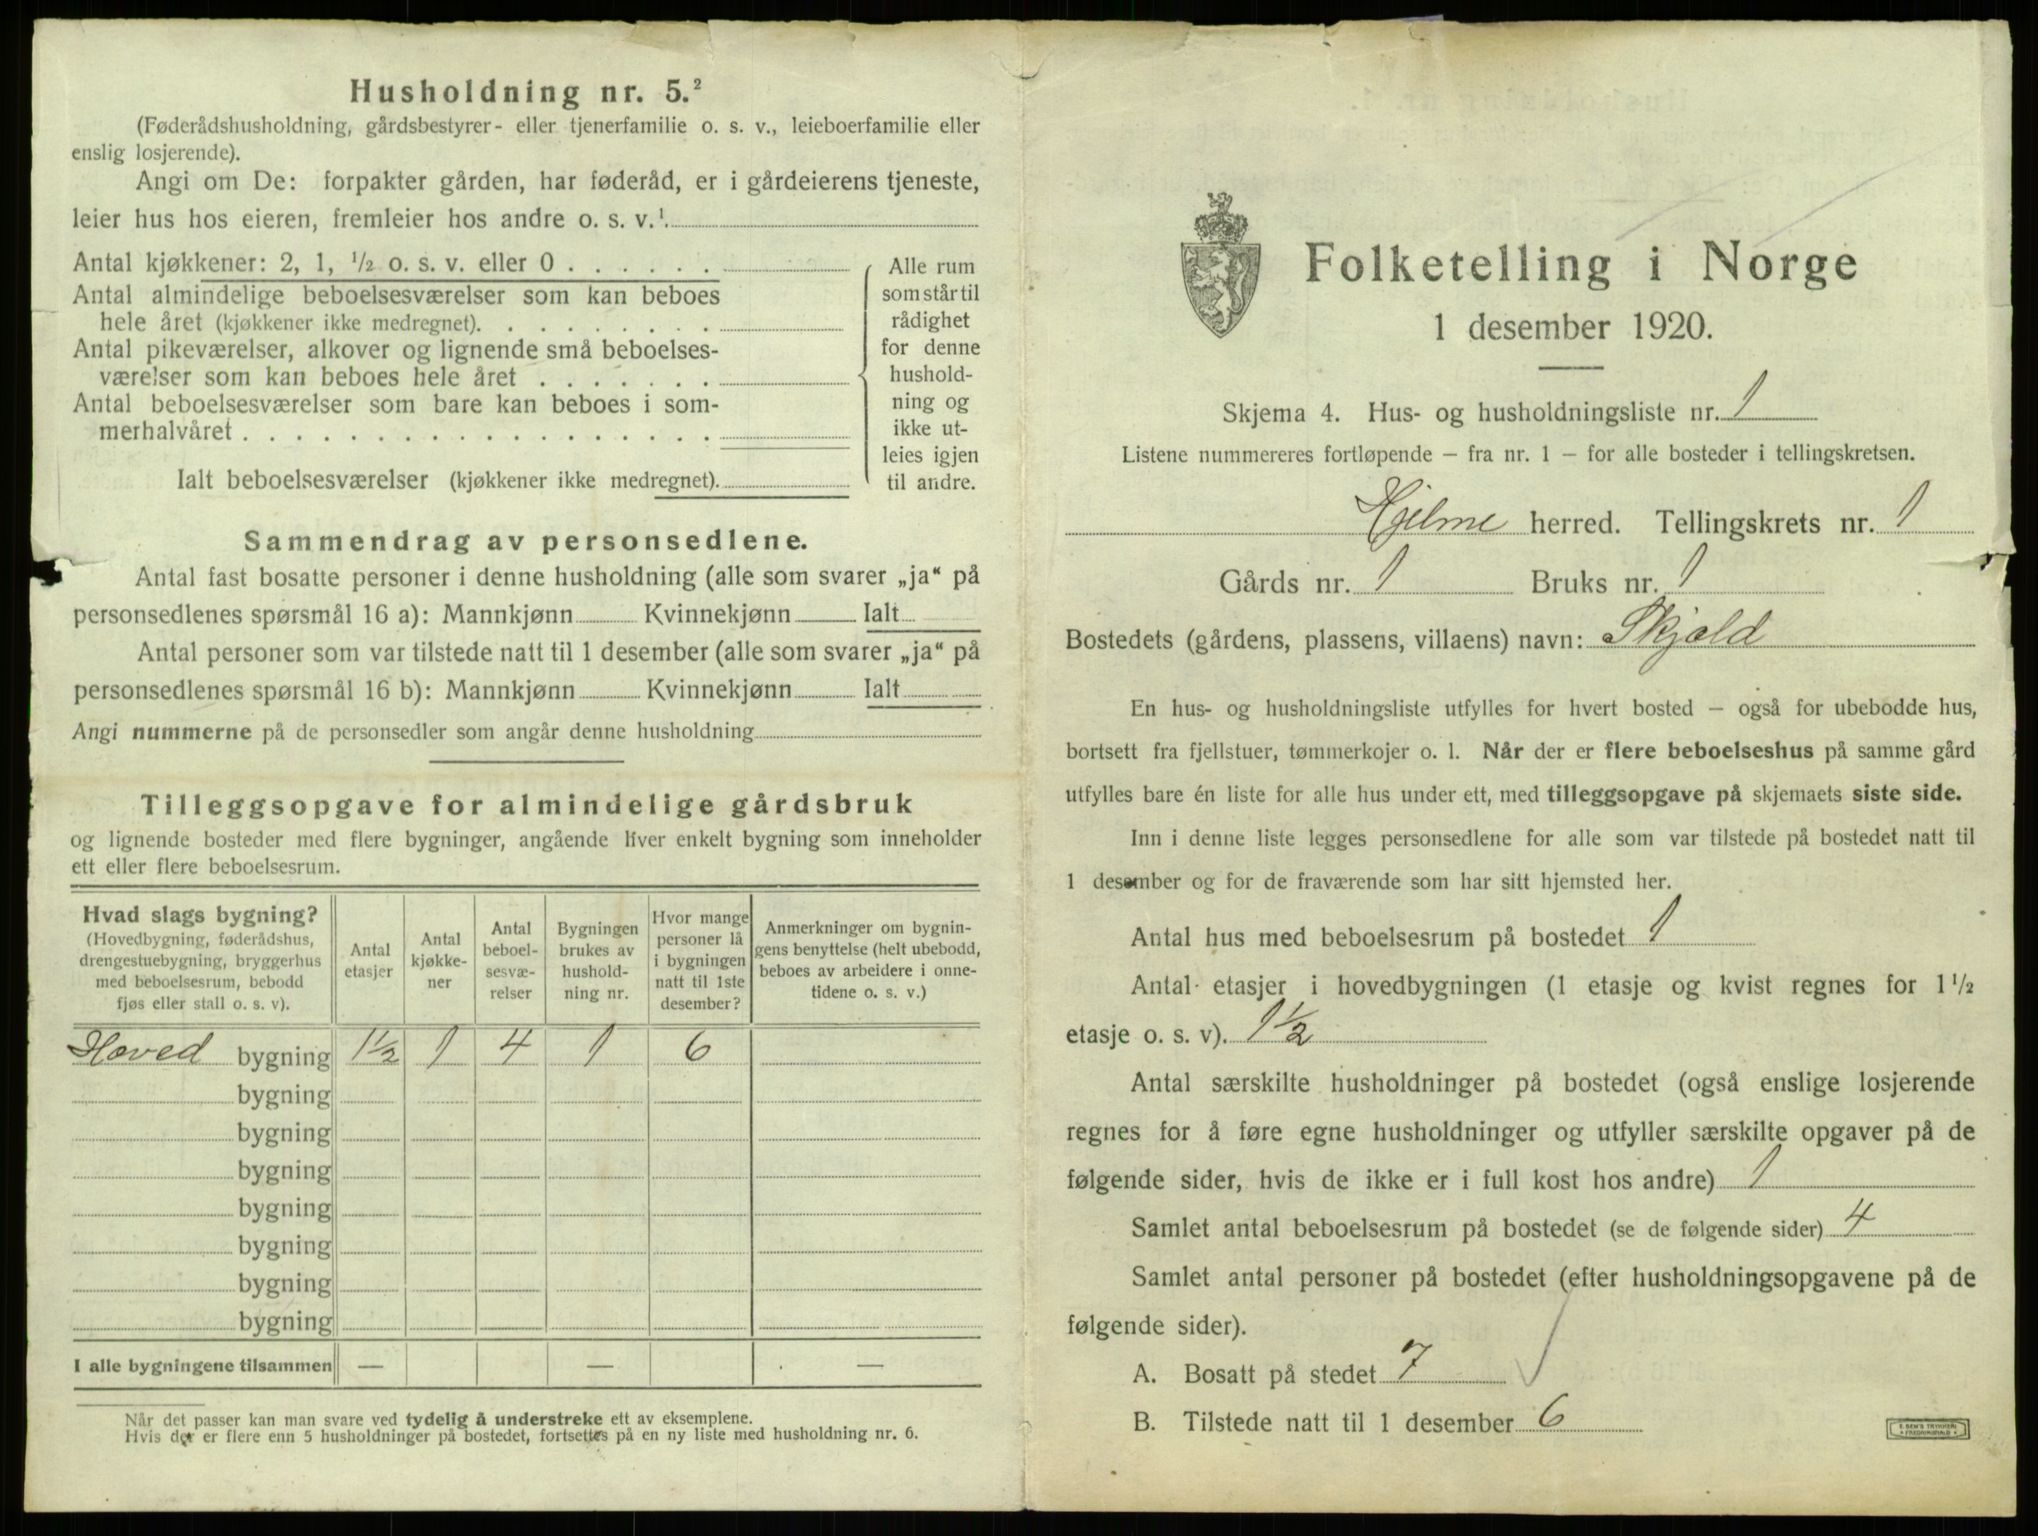 Husholdning nr. 5.²
(Føderådshusholdning, gårdsbestyrer- eller tjenerfamilie o. s. v., leieboerfamilie eller
enslig losjerende).
Angi om De: forpakter gården, har føderåd, er i gårdeierens tjeneste,
leier hus hos eieren, fremleier hos andre o. s. v.¹
Antal kjøkkener: 2, 1, ½ o. s. v. eller 0 . . . . . .
Antal almindelige beboelsesværelser som kan beboes
hele året (kjøkkener ikke medregnet). . . . . . . . .
Antal pikeværelser, alkover og lignende små beboelses-
værelser som kan beboes hele året . . . . . . .
Antal beboelsesværelser som bare kan beboes i som-
merhalvåret . . . . . . . . . . . . . . . . . .
Ialt beboelsesværelser (kjøkkener ikke medregnet).
Alle rum
som står til
rådighet
for denne
hushold-
ning og
ikke ut-
leies igjen
til andre.
Sammendrag av personsedlene.
Antal fast bosatte personer i denne husholdning (alle som svarer „ja“ på
personsedlenes spørsmål 16 a): Mannkjønn Kvinnekjønn Ialt
Antal personer som var tilstede natt til 1 desember (alle som svarer „ja“ på
personsedlenes spørsmål 16 b): Mannkjønn Kvinnekjønn Ialt
Angi nummerne på de personsedler som angår denne husholdning
Tilleggsopgave for almindelige gårdsbruk
og lignende bosteder med flere bygninger, angående hver enkelt bygning som inneholder
ett eller flere beboelsesrum.
Hvad slags bygning?
(Hovedbygning, føderådshus,
drengestuebygning, bryggerhus
med beboelsesrum, bebodd
fjøs eller stall o. s. v).
Antal
etasjer
Antal
kjøkke-
ner
Antal
beboel-
sesvæ-
relser
Bygningen
brukes av
hushold-
ning nr.
Hvor mange
personer lå
i bygningen
natt til 1ste
desember?
Anmerkninger om bygnin-
gens benyttelse (helt ubebodd,
beboes av arbeidere i onne-
tidene o. s. v.)
Hoved bygning 1½ 1 4 1 6
bygning
bygning
bygning
bygning
bygning
bygning
bygning
I alle bygningene tilsammen — — —
Når det passer kan man svare ved tydelig å understreke ett av eksemplene.
Hvis der er flere enn 5 husholdninger på bostedet, fortsettes på en ny liste med husholdning nr. 6.
Folketelling i Norge
1 desember 1920.
Skjema 4. Hus- og husholdningsliste nr. 1
Listene nummereres fortløpende — fra nr. 1 — for alle bosteder i tellingskretsen.
Hjelme herred. Tellingskrets nr. 1
Gårds nr. 1 Bruks nr. 1
Bostedets (gårdens, plassens, villaens) navn: Skjold
En hus- og husholdningsliste utfylles for hvert bosted — også for ubebodde hus,
bortsett fra fjellstuer, tømmerkojer o. l. Når der er flere beboelseshus på samme gård
utfylles bare én liste for alle hus under ett, med tilleggsopgave på skjemaets siste side.
Inn i denne liste legges personsedlene for alle som var tilstede på bostedet natt til
1 desember og for de fraværende som har sitt hjemsted her.
Antal hus med beboelsesrum på bostedet 1
Antal etasjer i hovedbygningen (1 etasje og kvist regnes for 1 ½
etasje o. s. v). 1½
Antal særskilte husholdninger på bostedet (også enslige losjerende
regnes for å føre egne husholdninger og utfyller særskilte opgaver på de
følgende sider, hvis de ikke er i full kost hos andre) 1
Samlet antal beboelsesrum på bostedet (se de følgende sider) 4
Samlet antal personer på bostedet (efter husholdningsopgavene på de
følgende sider).
A. Bosatt på stedet 7
B. Tilstede natt til 1 desember 6